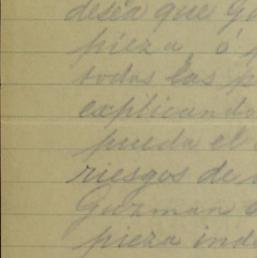 desea que Gu
pieza, ó p
todas las p
explicando
pueda el
riesgos de
Guzman
pieza ind